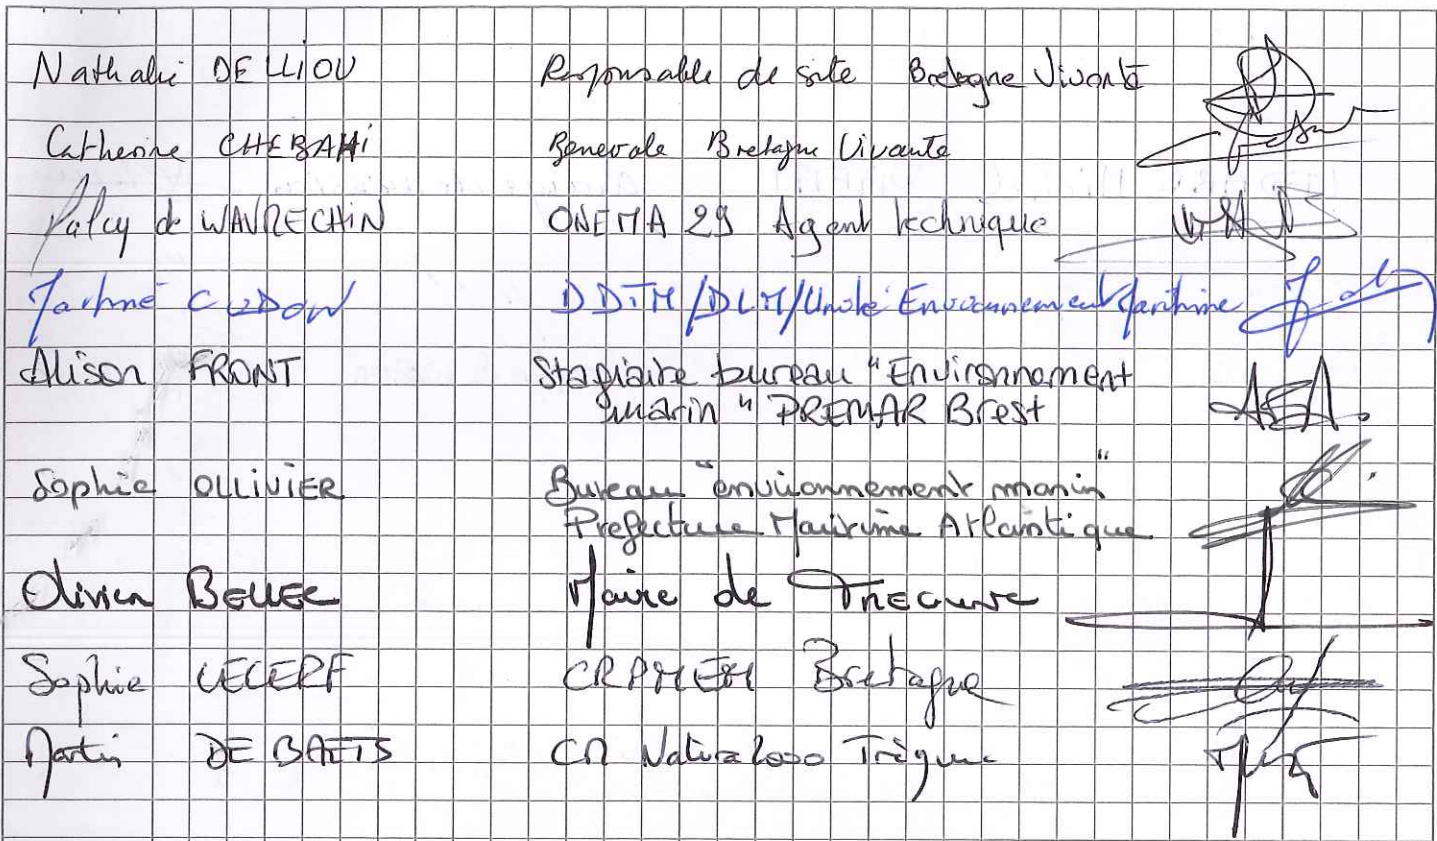 Nathalie DELLIOU Responsable de site Bretagne Vivante
Catherine CHEBAHI Bénévole Bretagne Vivante
de WAVRECHIN ONEMA 29 Agent technique
CUDON DDTM/DLM/Unité Environnement Maritime
Alison FRONT Stagiaire bureau "Environnement
marin" PREMAR Brest
Sophie OLLIVIER Bureau "environnement marin"
Prefecture Maritime Atlantique
Olivier BELLEC Maire de TREGUNC
Sophie LECERF CRPMEM Bretagne
Martin DE BAETS CM Natura 2000 Trégunc